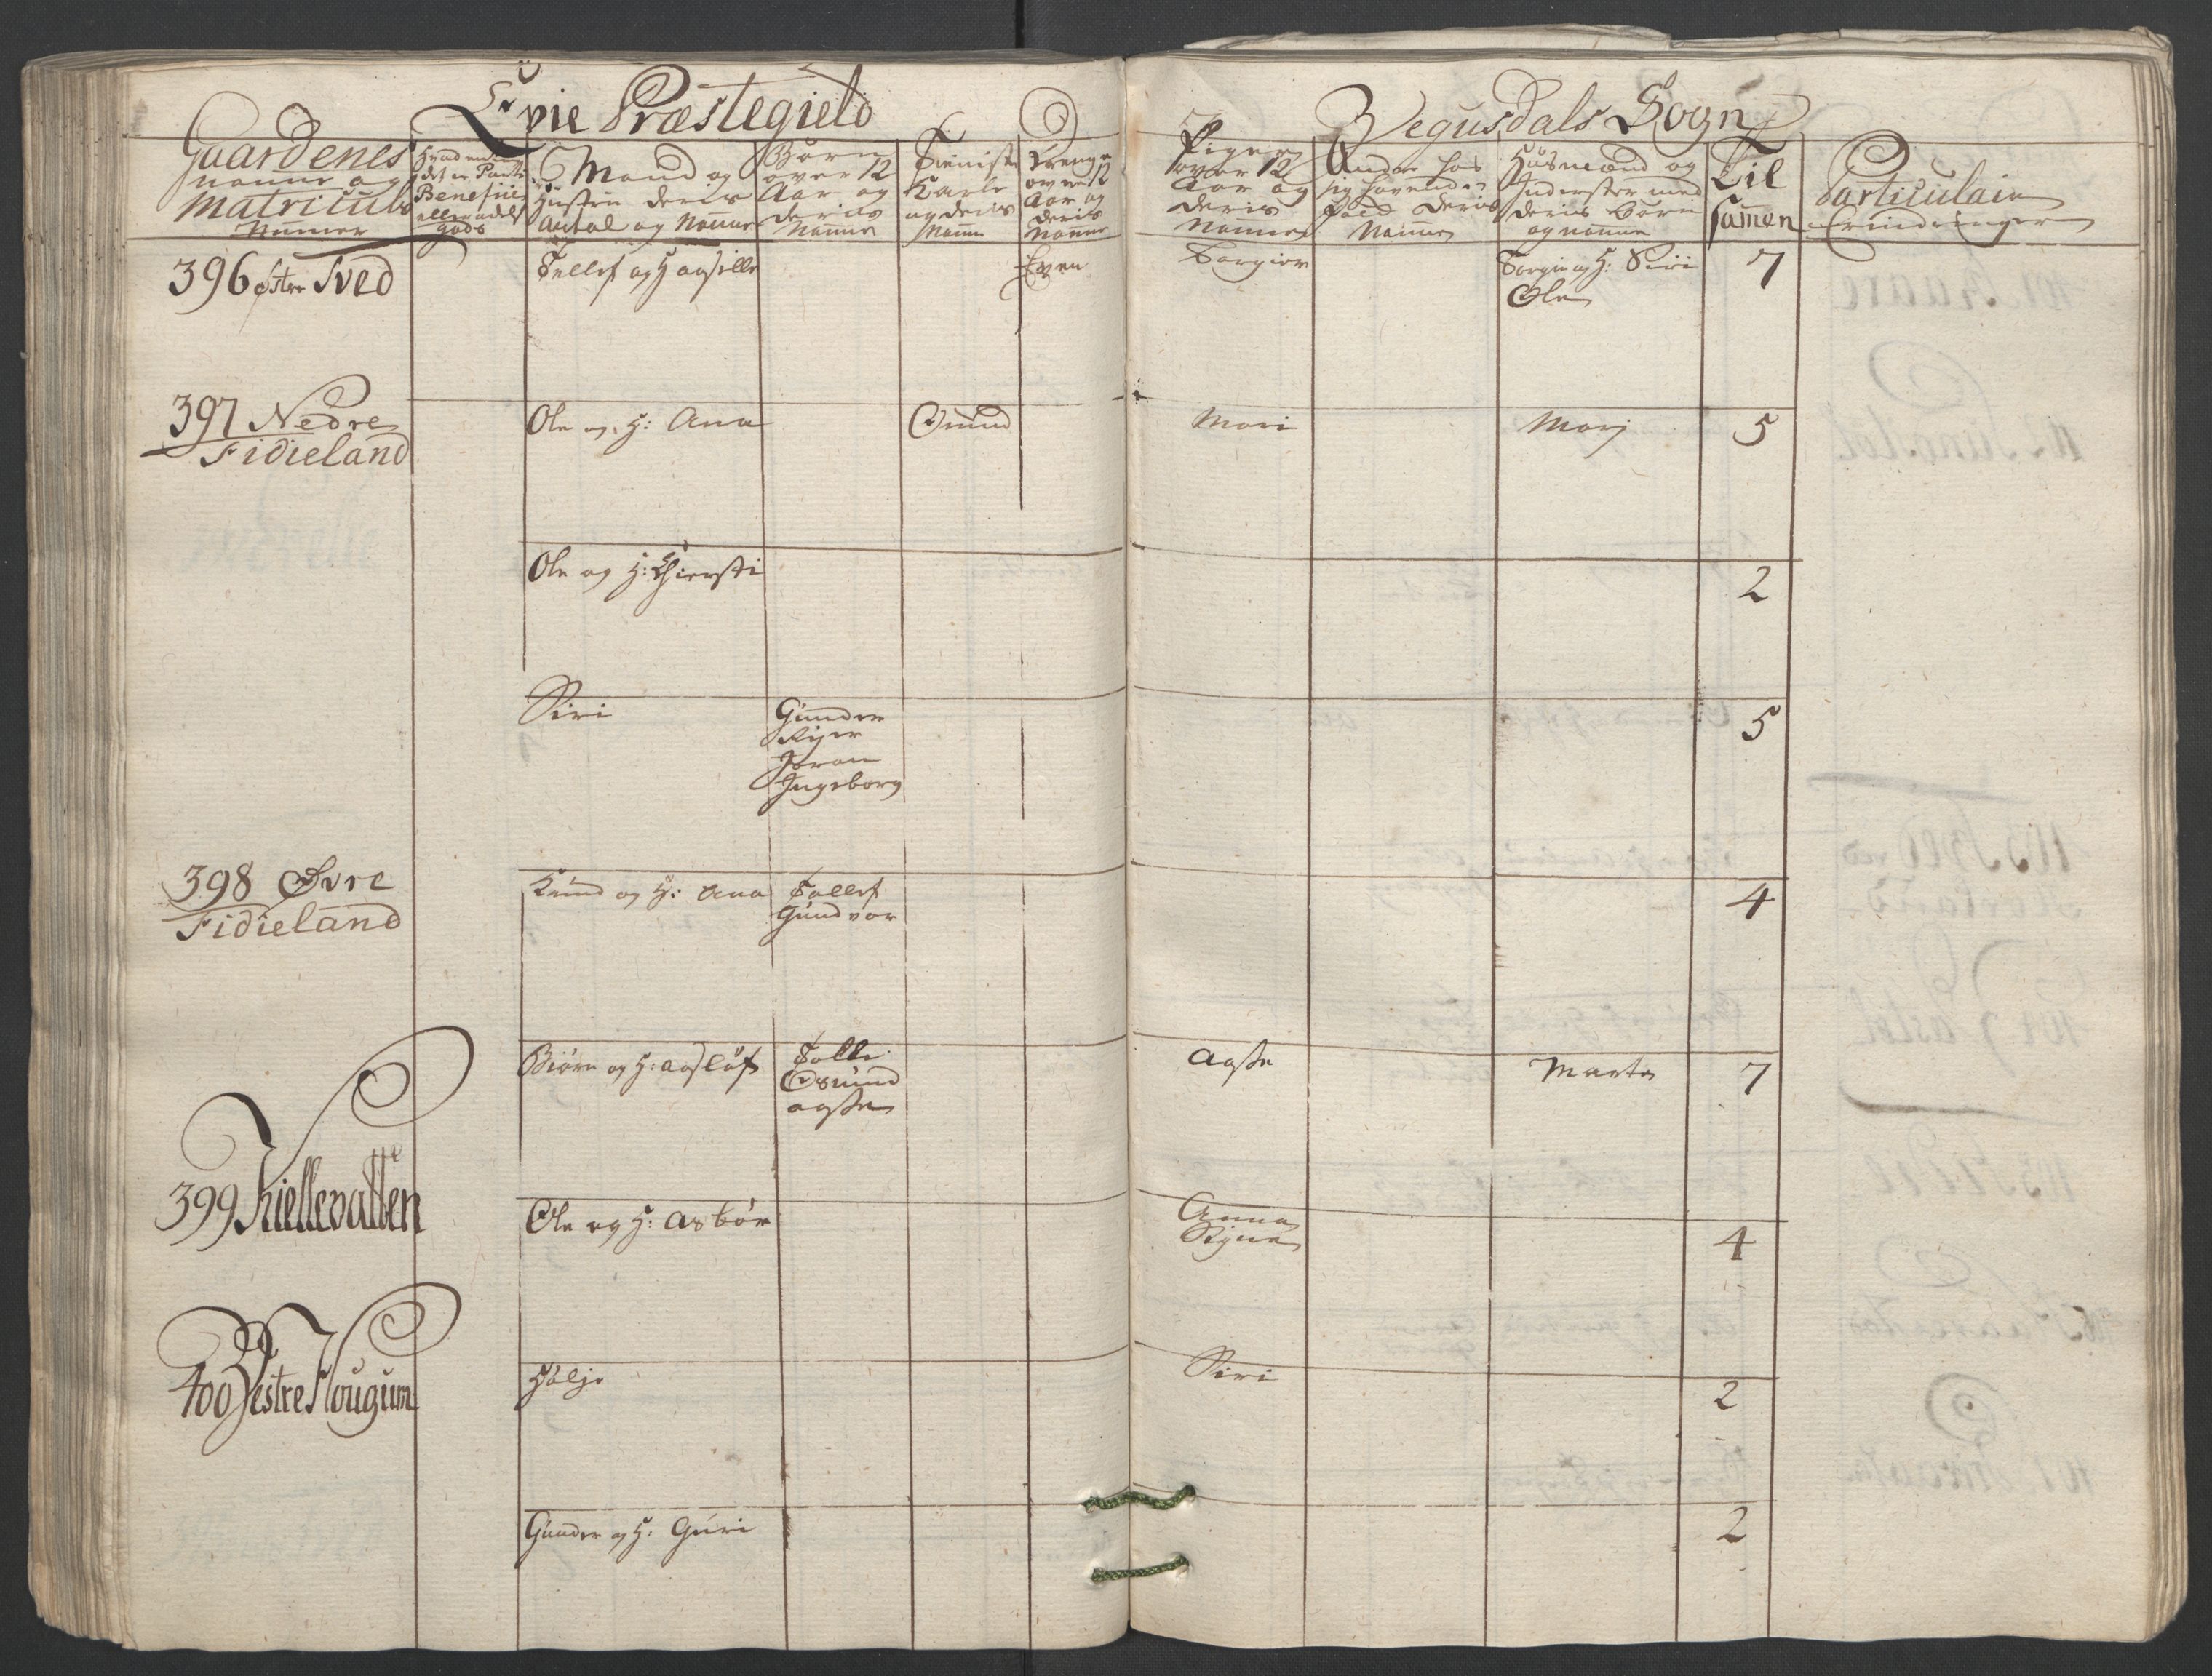 Evie Præstegield
Vegusdals Sogn
Gaardenes
Nanne og
Matriculs
Numer
Beneficie
eller adels
gods
Mand og
Hustru deris
Antal og Nanne
Børn
over 12
Aar og
deris
Nanne
Tieniste
Karle
og deris
Nanne
Drenge
over 12
Aar og
deris
Nanne
Piger
over 12
Aar og
deris
Nanne
Andre hos
sig havende
deris
Nanne
Huusmænd og
Inderster med
deris børn
og nanne
Til
samen
Particulair
Erindringer
396 Østre Tved
Tellef og H
Even
Torgier
Torgier og H: Siri
Ole
7
397 Nedre
Fidieland
Ole og H: Ana
Omund
Mari
Mari
5
Ole og H: Kiersti
2
Siri
Gunder
Joran
Ingeborg
5
398 Øvre
Fidieland
Knud og H: Ana
Tallef
Gundvor
4
Biørn og H: Aasløf
Salve
Osmund
Aaste
Aaste
Marta
7
399 Kiellevatten
Ole og H: Asbør
Anna
Signe
4
400 Vestre Hougum
Helje
Siri
2
Gunder og H: Guri
2